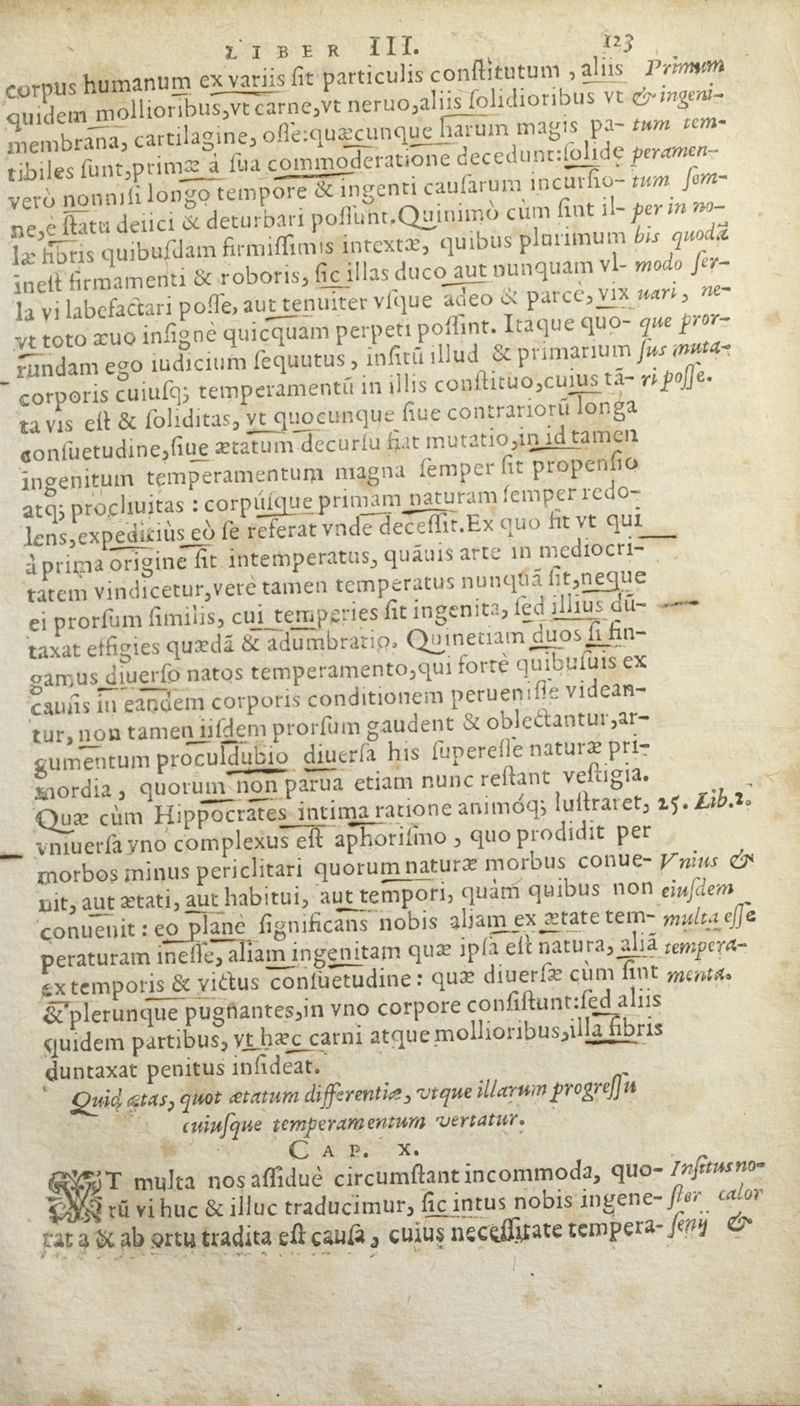 LIBER III. 123
corpus humanum ex variis ſit particulis conſtitutum, aliis Primum
quidem mollioribus,vt carne,vt neruo,aliis ſolidioribus vt & ingeni-
membrana, cartilagine, oſſe:quæcunque harum magis pa- tum tem-
tibiles ſunt,primæ à ſua commoderatione decedunt:ſolidę peramen-
verò nonniſi longo tempore & ingenti cauſarum incurſio- tum ſem-
ne,è ſtatu deiici & deturbari poſſunt.Quinimò cùm ſint il- per in no-
læ fibris quibuſdam firmiſſimis intextæ, quibus plurimum bis quodā
ineſt firmamenti & roboris, ſic illas duco aut nunquam vl- modo ſer-
la vi labefactari poſſe, aut tenuiter vſque adeo & parcè, vix uari, ne-
vt toto æuo inſigne quicquam perpeti poſſint. Itaque quo- que pror-
rundam ego iudicium ſequutus, inſitū illud & primarium ſus muta-
corporis cuiuſq; temperamentū in illis conſtituo,cuius tā- ri poſſe.
ta vis eſt & ſoliditas, vt quocunque ſiue contrariorū longa
conſuetudine,ſiue ætatum decurſu fiat mutatio,in id tamen
ingenitum temperamentum magna ſemper ſit propenſio
atq; procliuitas : corpúſque primam naturam ſemper redo-
lens,expeditiùs eò ſe referat vnde deceſſit.Ex quo fit vt qui
à prima origine ſit intemperatus, quāuis arte in mediocri-
tatem vindicetur,verè tamen temperatus nunquā ſit,neque
ei prorſum ſimilis, cui temperies ſit ingenita, ſed illius dū-
taxat effigies quædā & adumbratio. Quinetiam duos ſi fin-
gamus diuerſo natos temperamento,qui fortè quibuſuis ex
cauſis in eandem corporis conditionem perueniſſe videan-
tur, non tamen iiſdem prorſum gaudent & oblectantur,ar-
gumentum proculdubio diuerſa his ſupereſſe naturæ pri-
mordia, quorum non parua etiam nunc reſtant veſtigia.
Quæ cùm Hippocrates intima ratione animóq; luſtraret, 25. Lib.2.
vniuerſa vno complexus eſt aphoriſmo, quo prodidit per
morbos minus periclitari quorum naturæ morbus conue- Vnius &
nit, aut ætati, aut habitui, aut tempori, quàm quibus non eiuſdem
conuenit : eo planè ſignificans nobis aliam ex ætate tem- multa eſſe
peraturam ineſſe, aliam ingenitam quæ ipſa eſt natura, aliā tempera-
ex temporis & victus conſuetudine : quæ diuerſæ cùm ſint menta.
& plerunque pugnantes,in vno corpore conſiſtunt:ſed aliis
quidem partibus, vt hæc carni atque mollioribus,illa fibris
duntaxat penitus inſideat.
Quid ætas, quot ætatum differentiæ, vtque illarum progreſſu
cuiuſque temperamentum vertatur.
CAP. X.
VT multa nos aſſiduè circumſtant incommoda, quo- Inſitus no-
rū vi huc & illuc traducimur, ſic intus nobis ingene- ſter calor
rata & ab ortu tradita eſt cauſa, cuius neceſſitate tempera- ſenij &